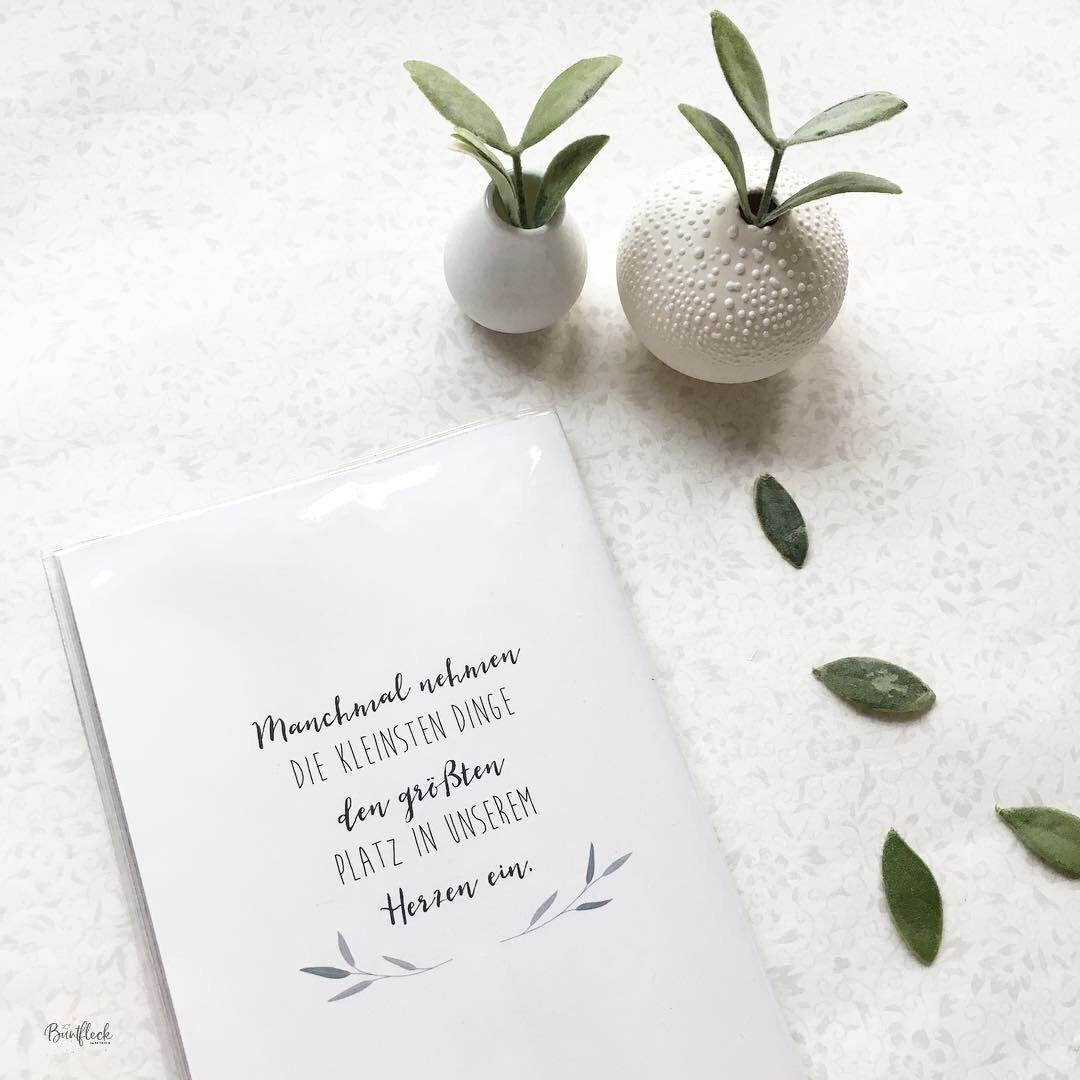 Manchmal nehmen
DIE KLEINSTEN DINGE
den größten
PLATZ IN UNSEREM
Herzen ein.
Buntfleck